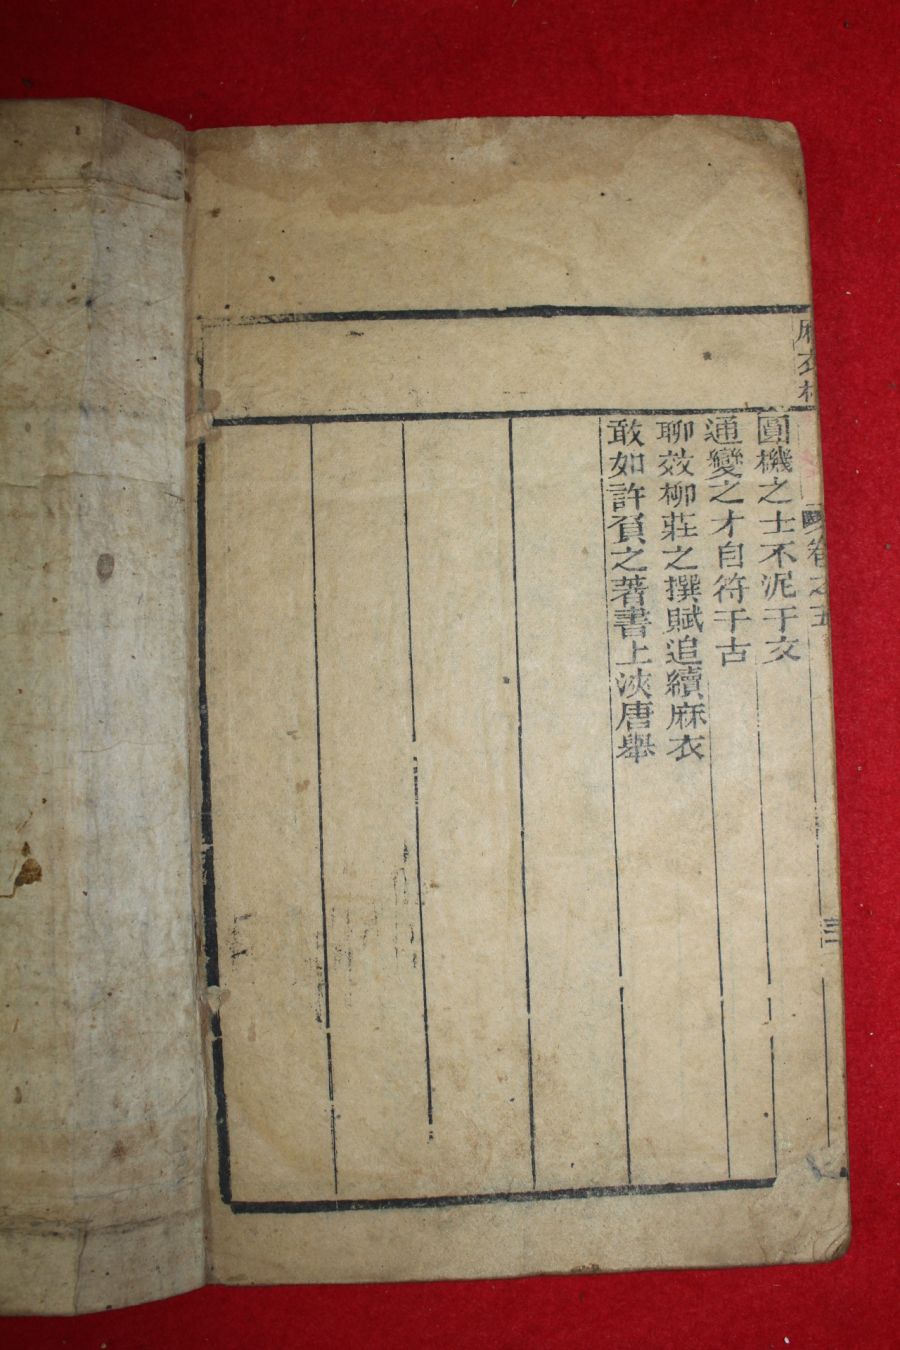 麻衣相
卷之五
圓機之士不泥于文
通變之才自符于古
聊效柳莊之撰賦追續麻衣
敢如許負之著書上浹唐舉